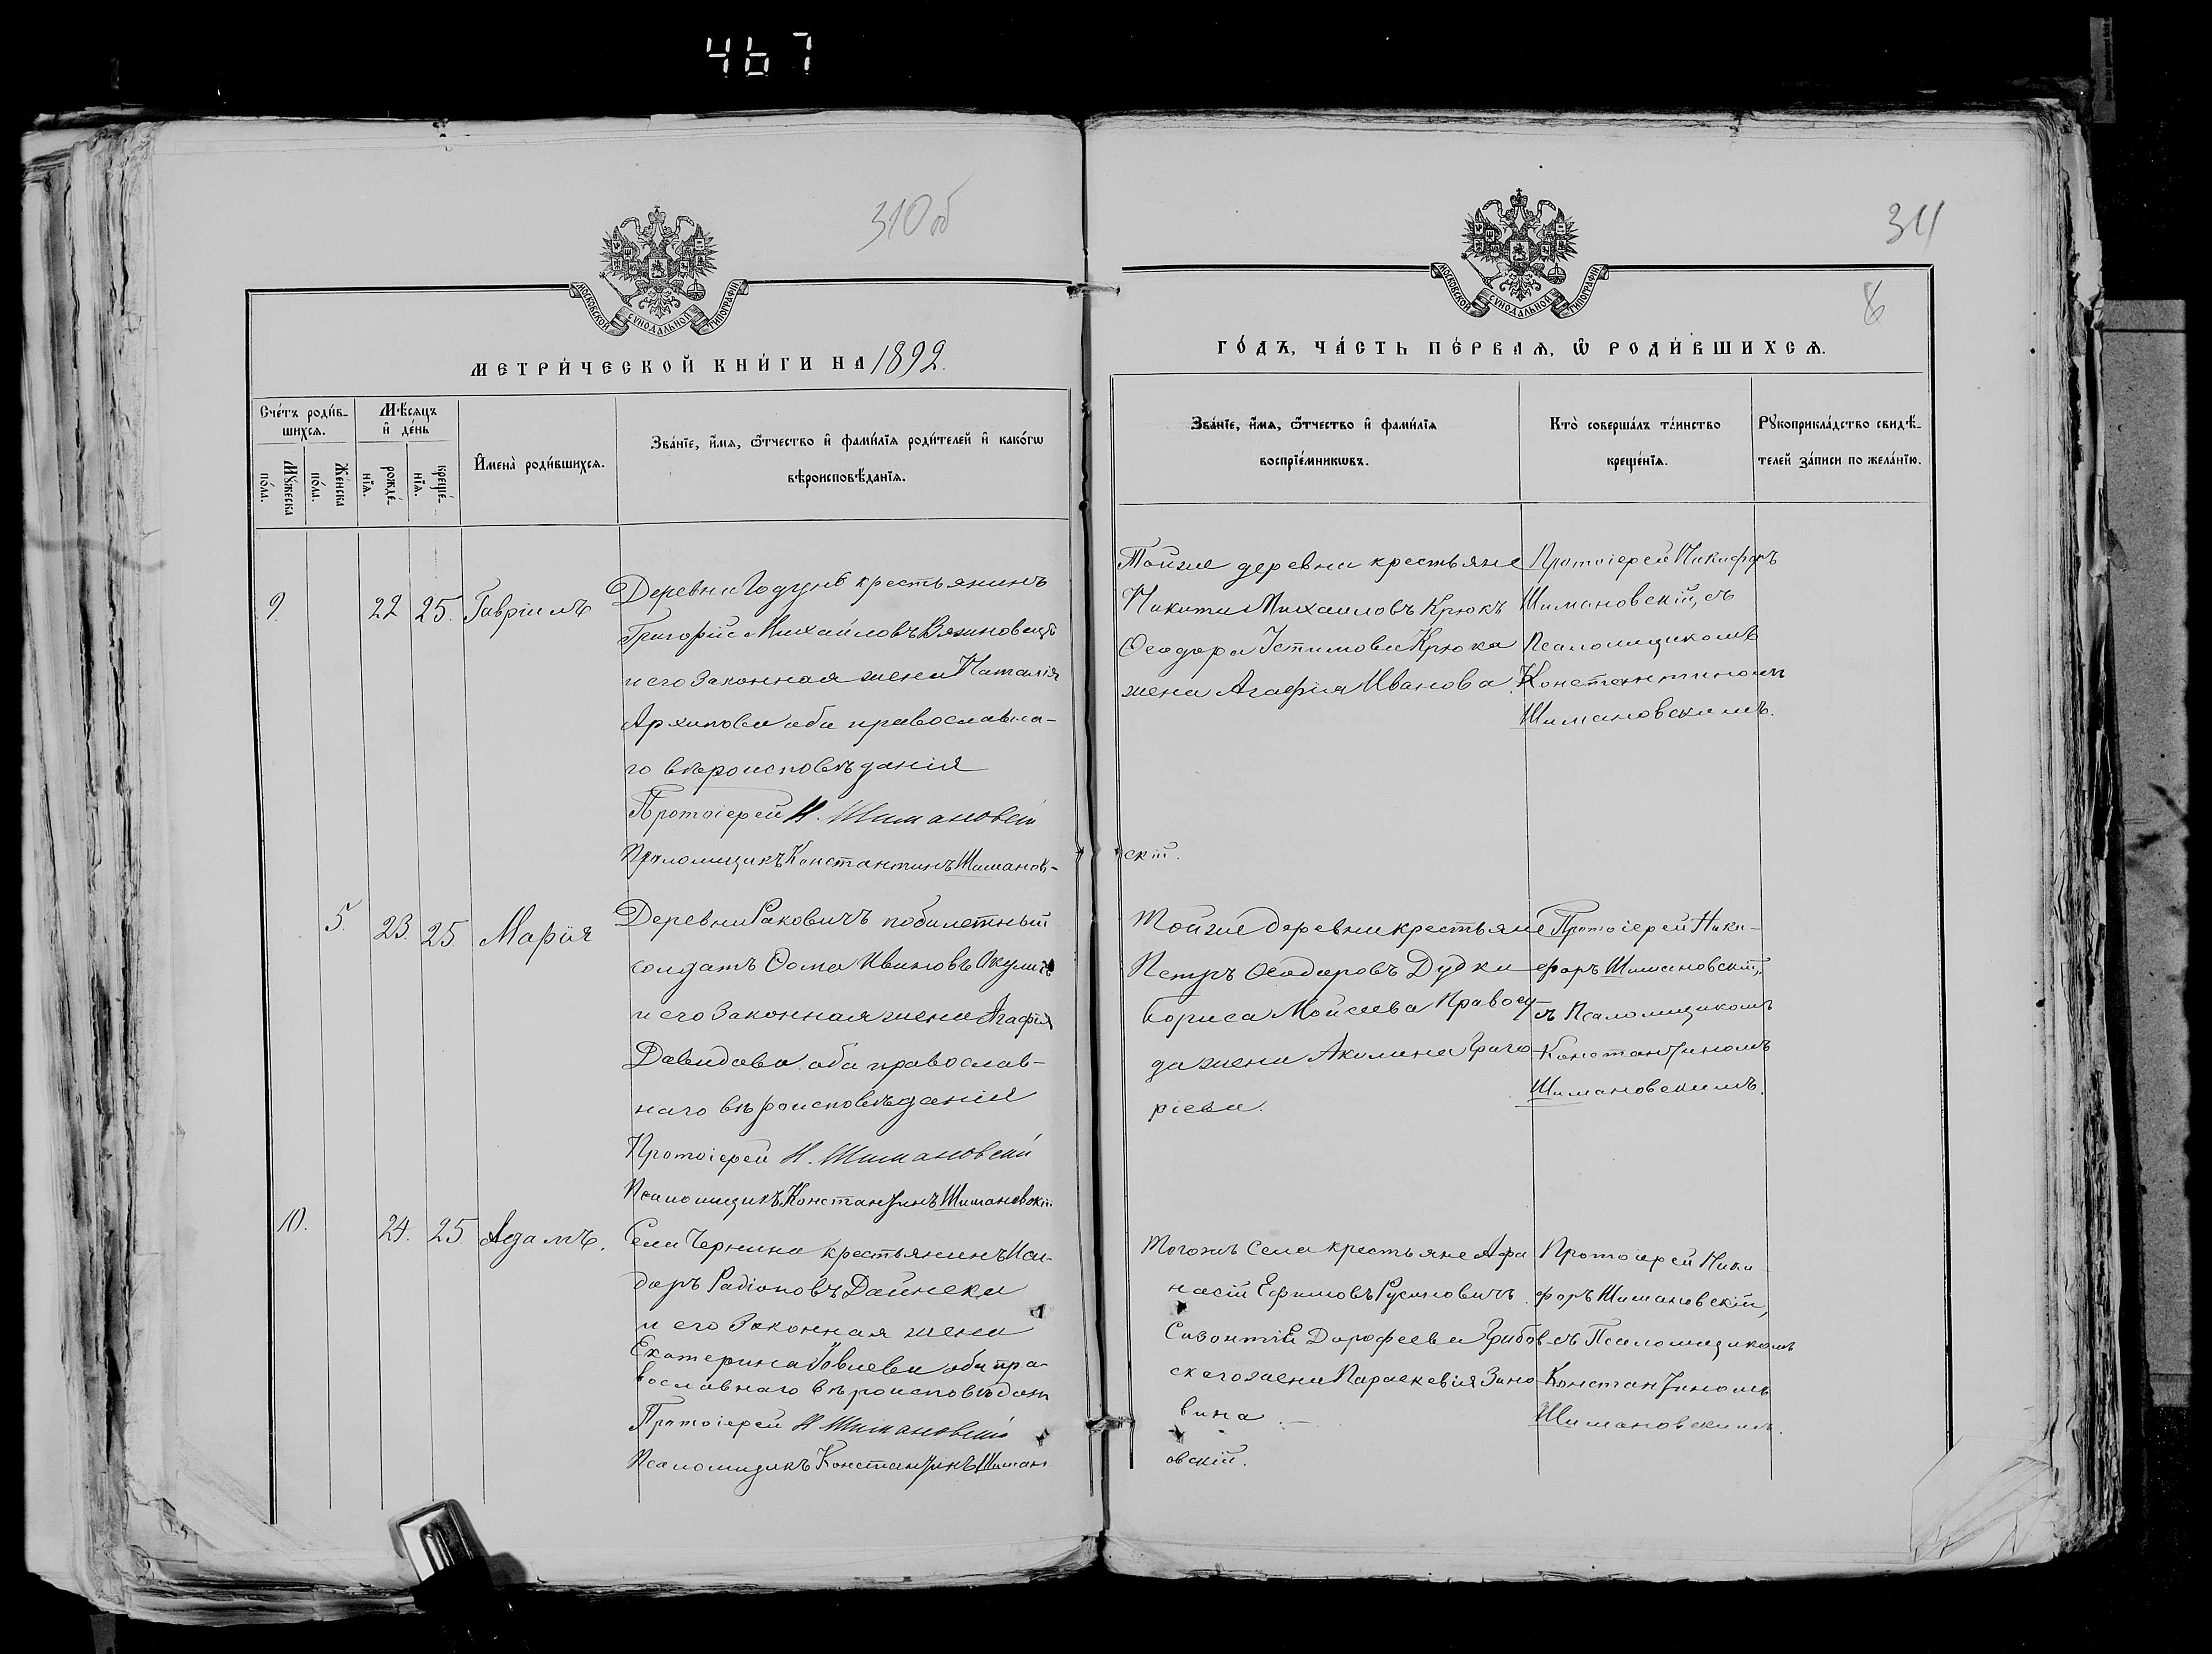 467
310об
МОСКОВСКОЙ СѴНОДАЛЬНОЙ ТИПОГРАФІИ
МЕТРИ́ЧЕСКОЙ КНИ́ГИ НА 1892.
Сче́тъ роди́в-
шихсѧ.
Мѣ́сѧцъ
и҆ де́нь
Мꙋ́жеска
по́ла.
Же́нска
по́ла.
рожде́-
нїѧ.
креще́-
нїѧ.
И҆мена̀ роди́вшихсѧ.
Зва́нїе, и҆́мѧ, ѻ҆́тчество и҆ фами́лїѧ роди́телей и҆ како́гѡ
вѣроисповѣ́данїѧ.
9. 22 25. Гавріилъ
Деревни Годунъ крестьянинъ
Григорій Михайловъ Вязиновецъ
и его законная жена Наталія
Архипова оба православна-
го вѣроисповѣданія
Протоіерей Н. Шимановскій
Псаломщикъ Константинъ Шиманов-
5. 23. 25 Марія
Деревни Раковичъ побилетный
солдатъ Ѳома Ивановъ Акуличъ
и его законная жена Агафія
Давидова оба православ-
наго вѣроисповѣданія
Протоіерей Н. Шимановскій
Псаломщикъ Константинъ Шимановскій
10. 24. 25 Адамъ.
Села Чернина крестьянинъ Иси-
доръ Радіоновъ Дайнека
и его законная жена
Екатерина Іовлева оба пра-
вославнаго вѣроисповѣдан
Протоіерей Н Шимановскій
Псаломщикъ Константинъ Шиман
311
8
МОСКОВСКОЙ СѴНОДАЛЬНОЙ ТИПОГРАФІИ
ГО́ДЪ, ЧА́СТЬ ПЕ́РВАѦ, Ѡ҆ РОДИ́ВШИХСѦ.
Зва́нїе, и҆́мѧ, ѻ҆́тчество и҆ фами́лїѧ
воспрїе́мникѡвъ.
Кто̀ соверша́лъ та́инство
креще́нїѧ.
Рꙋкоприкла́дство свидѣ́-
телей за́писи по жела́нїю.
Тойже деревни крестьяне
Никита Михаиловъ Крюкъ
Ѳеодора Устимова Крюка
жена Агафія Иванова
скій.
Протоіерей Никифоръ
Шимановскій, съ
Псаломщикомъ
Константиномъ
Шимановскимъ.
Тойже деревни крестьяне
Петръ Ѳеодоровъ Дудка
Бориса Моисеева Правосу-
да жена Акилина Григо-
ріева.
Протоіерей Ники-
форъ Шимановскій,
съ Псаломщикомъ
Константиномъ
Шимановскимъ.
Тогожъ Села крестьяне Афа
насій Ефимовъ Русиновичъ
Созонтій Дорофеева Грибов-
скаго жена Параскевія Зино-
вина.
овскій.
Протоіерей Ники-
форъ Шимановскій,
съ Псаломщикомъ
Константиномъ
Шимановскимъ.